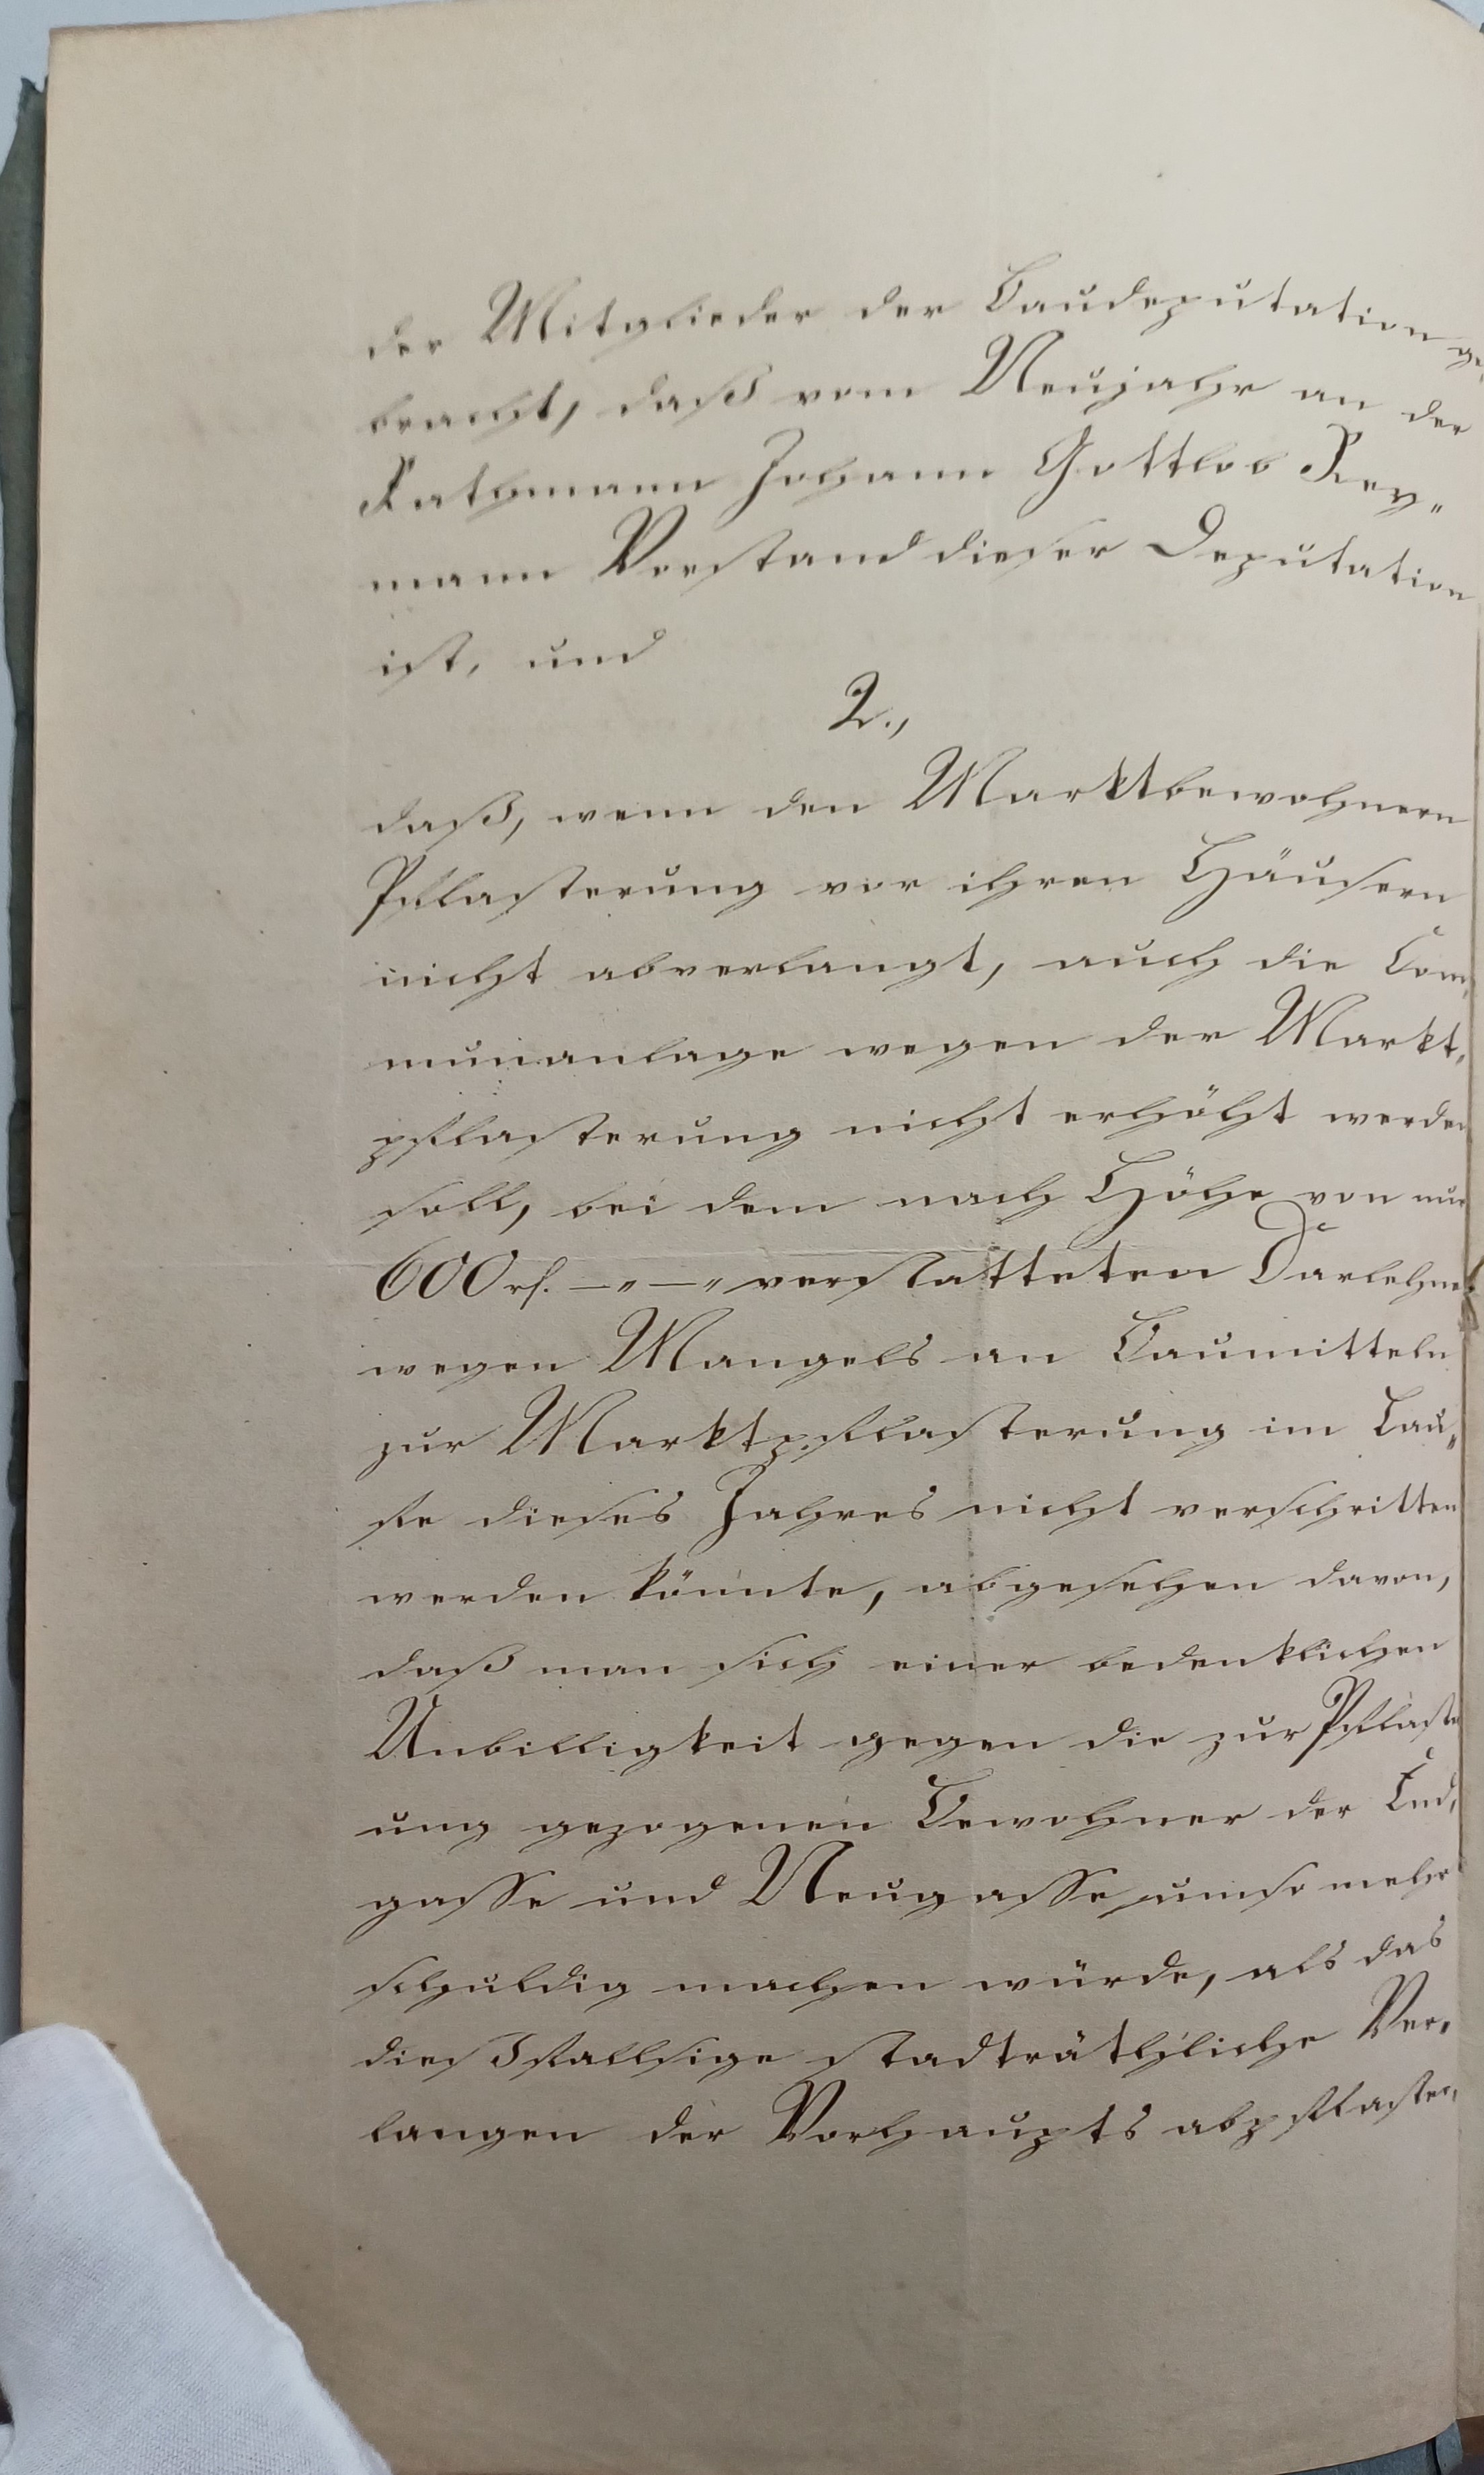 der Mitglieder der Baudeputation ge,
bracht, daß vom Neujahr an der
Rathmann Johann Gottlob Rey„
mann Vorstand dieser Deputation
ist, und
2.,
daß, wenn den Marktbewohnern
Pflasterung vor ihren Häusern
nicht abverlangt, auch die Com,
munanlage wegen der Markt,
pflasterung nicht erhöht werden
soll, bei dem nach Höhe von nur
600 rf. —„—„ verstatteten Darlehne
wegen Mangels an Baumitteln
zur Marktpflasterung im Lau„
fe dieses Jahres nicht verschritten
werden könnte, abgesehen davon,
daß man sich einer bedenklichen
Unbilligkeit gegen die zur Pflaster
ung gezogenen Bewohner der
gasse und Neugasse umso mehr
schuldig machen würde, als das
diesfallsige stadträthliche Ver,
langen der Vorhaupts abpflaster,